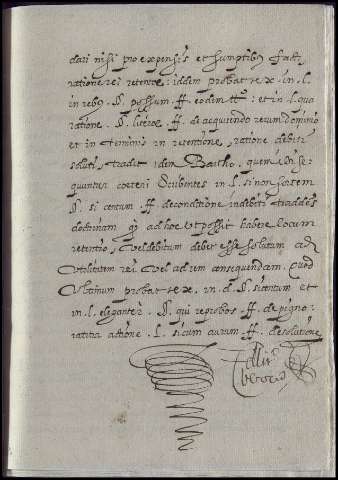 dari nisi pro expensis et sumptibus factis
ratione rei retentæ: idem probat rex in l.
in rebus §. possum ff. eodem tt.º: et in l. qua
ratione §. literæ ff. de acquirendo rerum dominio
et in terminis in retentione, ratione debiti
soluti, tradit idem Bartho. quem ... se
quuntur cæteri scribentes in l. si non sortem
§. si centum ff. de conditione indebiti tradētes
doctrinam q̃ ad hoc ut possit habere locum
retentio, vel debitum debet esse solutum ad
utilitatem rei vel ad eam consequendam. Quod
ultimum probat rex in d. §. si centum et
in l. eleganter §. qui reprobos ff. de pigno
ratitia actione l. si cum aurum ff. de solutione